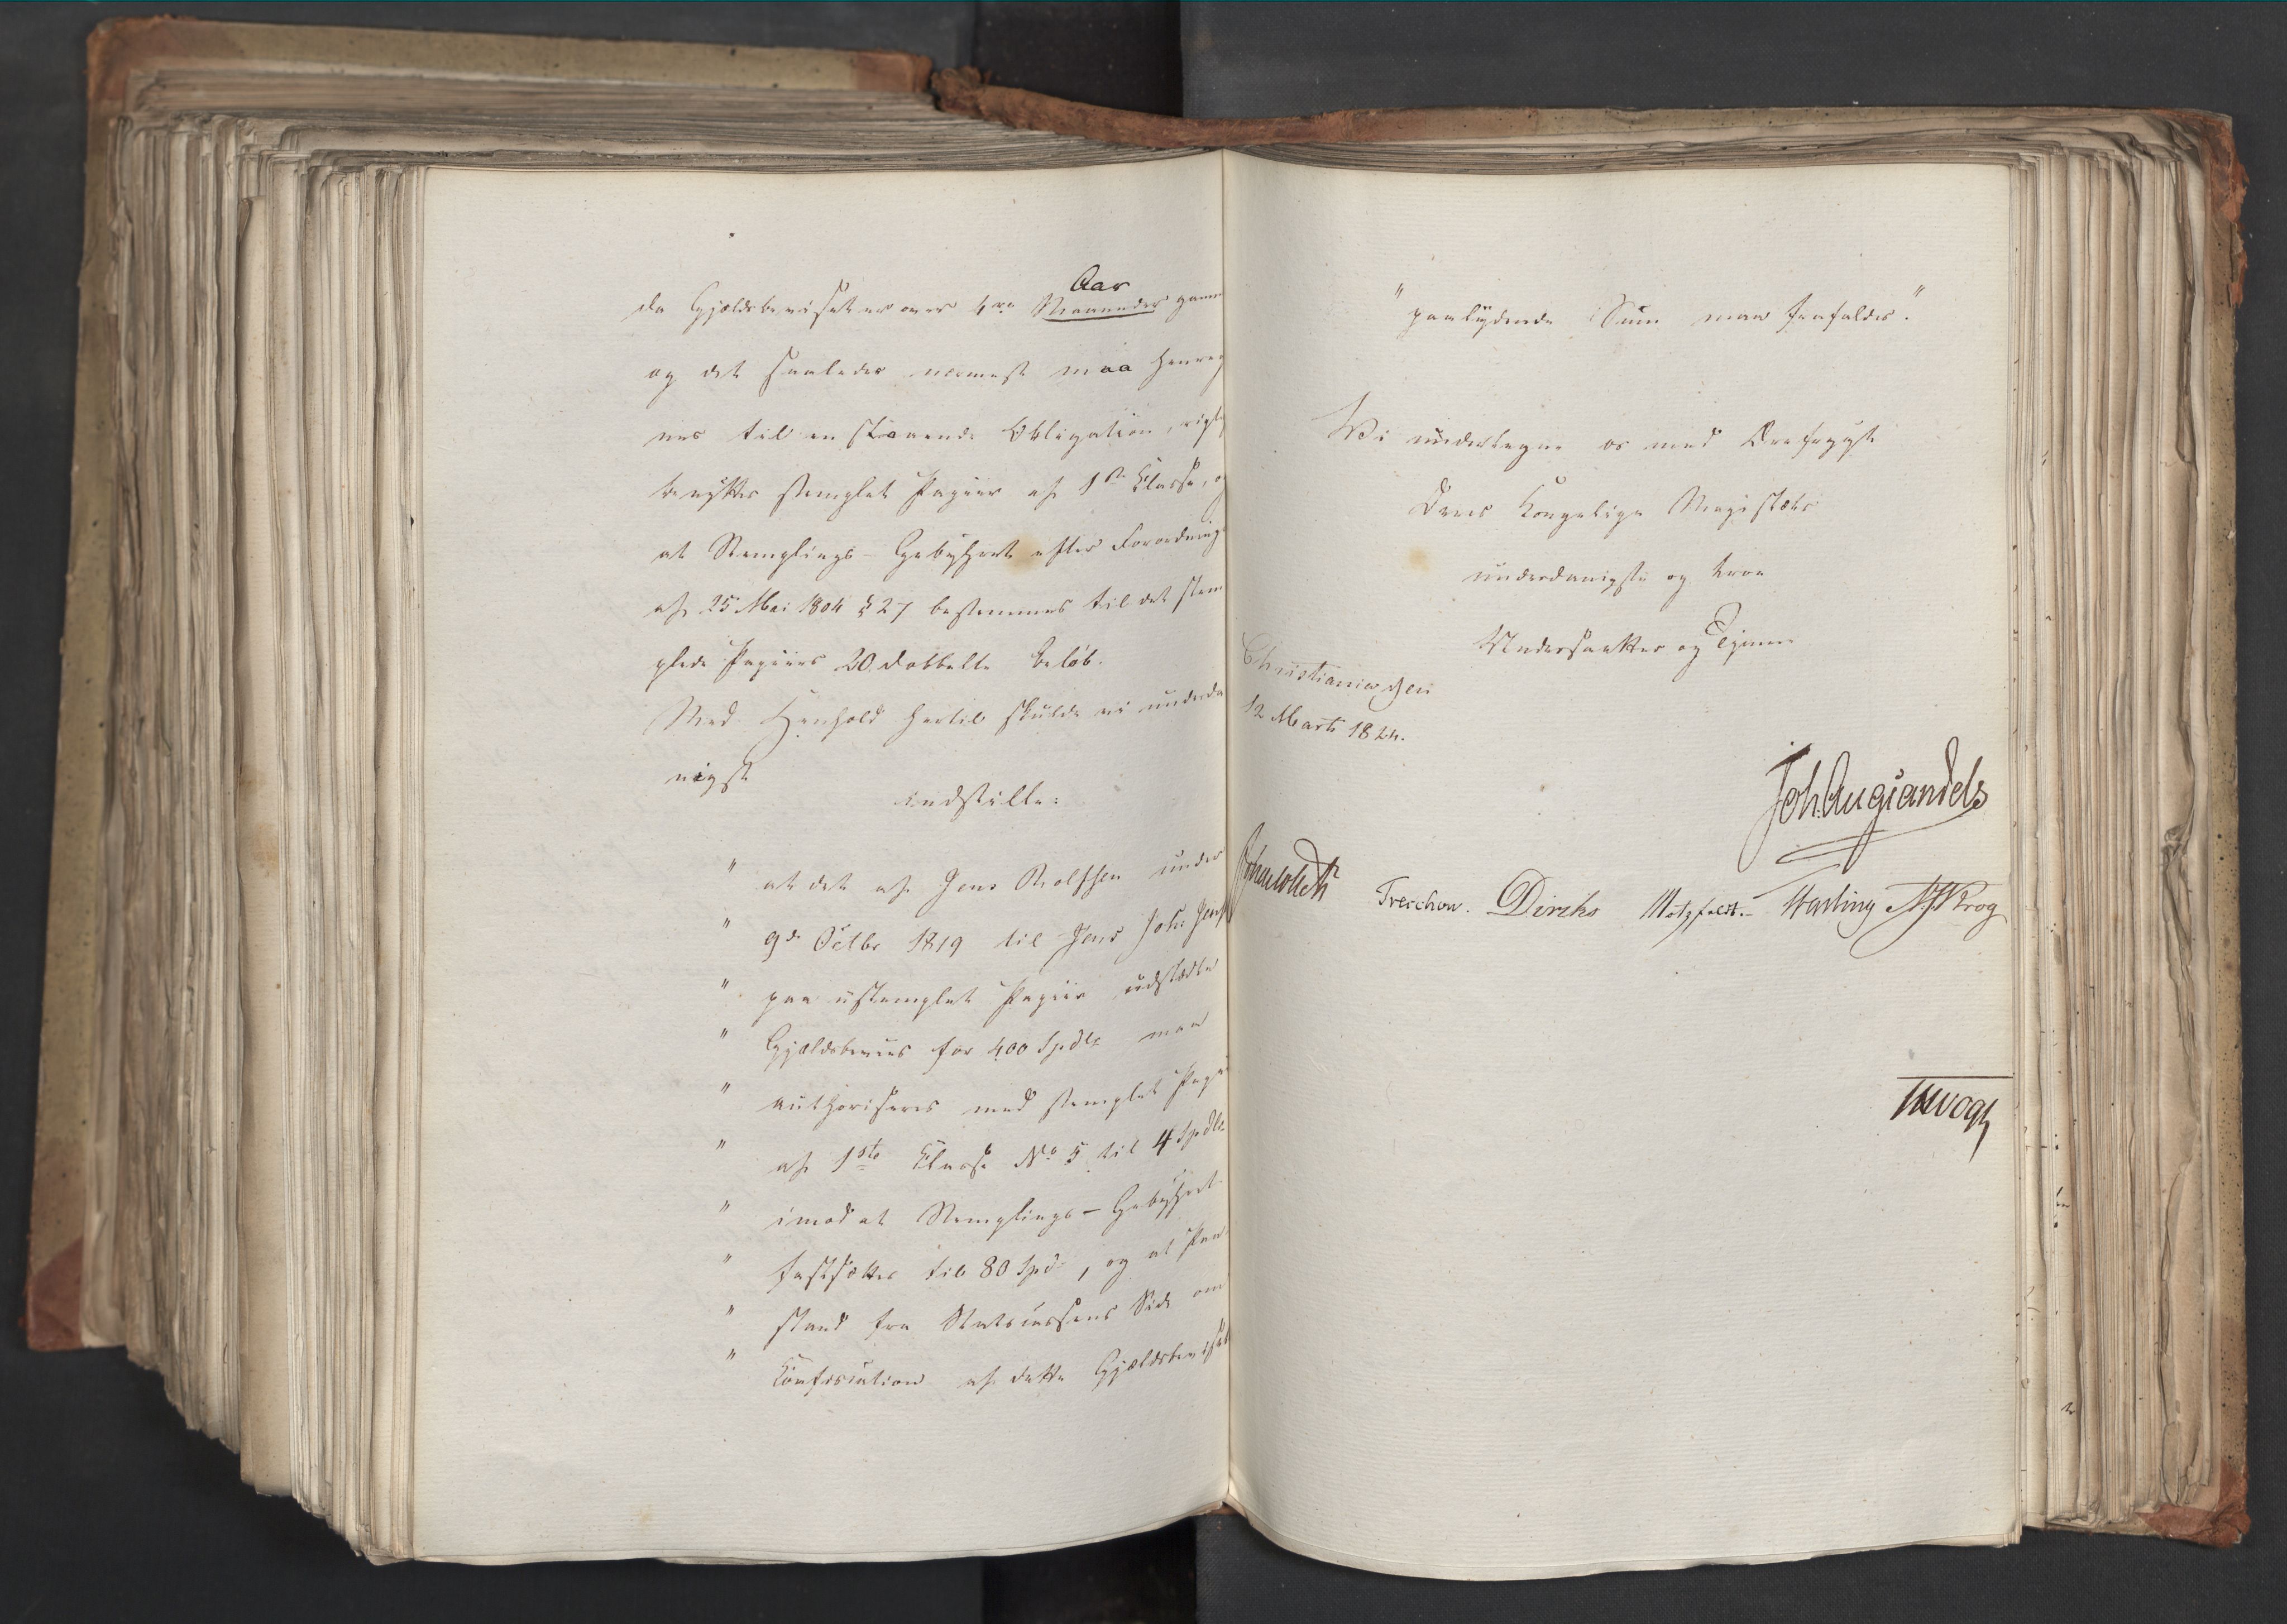 Aar
da Gjældsbeviset er over 4re Maaneder gam
og det saaledes nærmest maa henreg
nes til en staaende Obligation, rigt
benyttes stemplet Papiir af 1ste Classe, o
at Stemplings-Gebyhret efter Forordning
af 25 Mai 1804 § 27 bestemmes til det stem
plede Papiirs 20 dobbelte Beløb.
Med Henhold hertil skulde vi underda
nigst
indstille:
" at det af Jens Rolfsen under
" 9de Octbr 1819 til Jens Joh: Jens
" paa ustemplet Papiir udstædte
" Gjældsbeviis for 400 Spdlr maa
" authoriseres med stemplet Papi
" af 1ste Classe No 5 til 4 Spdlr
" imod at Stemplings-Gebyhret
" fastsættes til 80 Spd:, og at Paa
" stand fra Statscassens Side om
" Confiscation af dette Gjældsbevises
" paalydende Sum maa frafaldes."
Vi undertegne os med Ærefrygt
Deres Kongelige Majestæts
underdanigste og troe
Undersaatter og Tjenere
Christiania den
12 Marts 1824.
Joh. Aug Sandels
JHVogt
Treschow. Diriks Motzfeldt. Krog